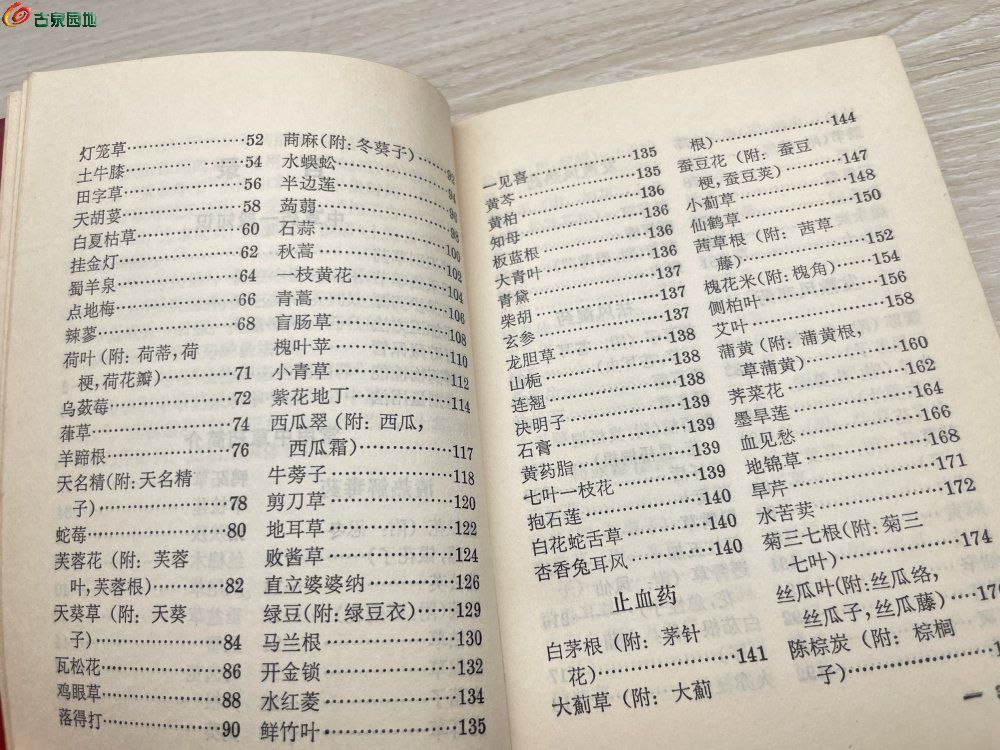 古泉园地
灯笼草……………52
土牛膝……………54
田字草……………56
天胡荽……………58
白夏枯草…………60
挂金灯……………62
蜀羊泉……………64
点地梅……………66
辣蓼………………68
荷叶(附: 荷蒂,荷
梗,荷花瓣)………71
乌蔹莓……………72
葎草………………74
羊蹄根……………76
天名精(附:天名精
子)………………78
蛇莓………………80
芙蓉花 (附: 芙蓉
叶,芙蓉根)………82
天葵草 (附: 天葵
子)………………84
瓦松花……………86
鸡眼草……………88
落得打……………90
苘麻(附:冬葵子)…92
水蜈蚣……………94
半边莲……………96
蒟蒻………………98
石蒜………………100
秋蒿………………102
一枝黄花…………104
青蒿………………106
盲肠草……………108
槐叶苹……………110
小青草……………112
紫花地丁…………114
西瓜翠 (附: 西瓜,
西瓜霜)…………117
牛蒡子……………118
剪刀草……………120
地耳草……………122
败酱草……………124
直立婆婆纳………126
绿豆(附:绿豆衣)…129
马兰根……………130
开金锁……………132
水红菱……………134
鲜竹叶……………135
一见喜……………135
黄芩………………135
黄柏………………136
知母………………136
板蓝根……………136
大青叶……………136
青黛………………137
柴胡………………137
玄参………………137
龙胆草……………138
山栀………………138
连翘………………138
决明子……………139
石膏………………139
黄药脂……………139
七叶一枝花………139
抱石莲……………140
白花蛇舌草………140
杏香兔耳风………140
止血药
白茅根 (附: 茅针
花)………………141
大蓟草 (附: 大蓟
根)………………144
蚕豆花 (附: 蚕豆
梗,蚕豆荚)………147
小蓟草……………148
仙鹤草……………150
茜草根 (附: 茜草
藤)………………152
槐花米(附:槐角)…154
侧柏叶……………156
艾叶………………158
蒲黄 (附: 蒲黄根,
草蒲黄)…………160
荠菜花……………162
墨旱莲……………164
血见愁……………166
地锦草……………168
旱芹………………171
水苦荬……………172
菊三七根(附: 菊三
七叶)……………174
丝瓜叶(附:丝瓜络,
丝瓜子,丝瓜藤)…
陈棕炭 (附: 棕榈
子)………………